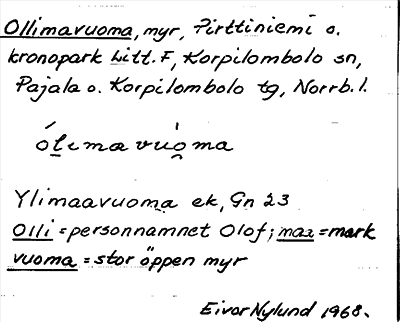 Ollimavuoma, myr, Pirttiniemi o.
kronopark Litt. F, Korpilombolo sn,
Pajala o. Korpilombolo tg, Norrb. l.
ólimavùo̯ma
Ylimaavuoma ek, Gn 23
Olli = personnamnet Olof; maa = mark
vuoma = stor öppen myr
Eivor Nylund 1968.